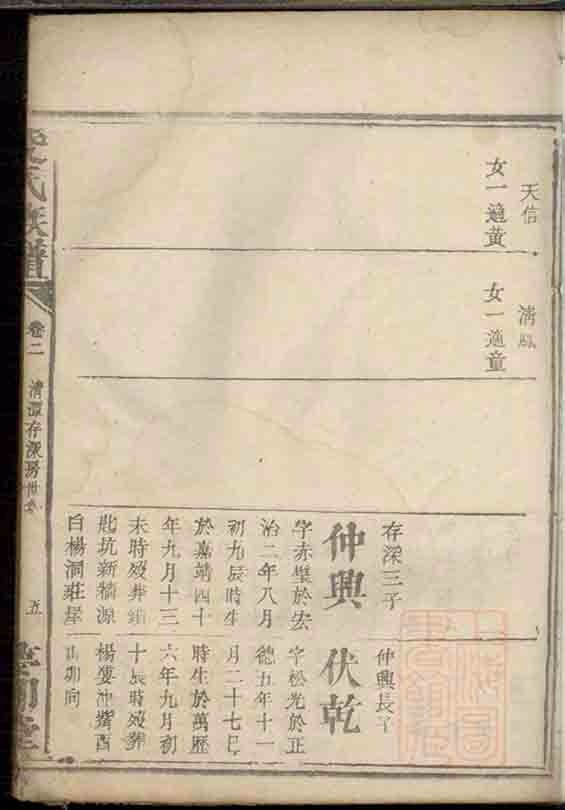 天信
女一適黃
清
女一適童
存深三子
仲興
字赤璧於宏
治二年八月
初九辰時生
於嘉靖四十
年九月十三
未時歿葬
坑新牆源
白楊洞莊屋
仲興長子
伏乾
字松光於正
德五年十一
月二十七巳
時生於萬歷
六年九月初
十辰時歿葬
楊婆冲酉
山卯向
氏族譜
卷二
清潭存深房世系
五
堂